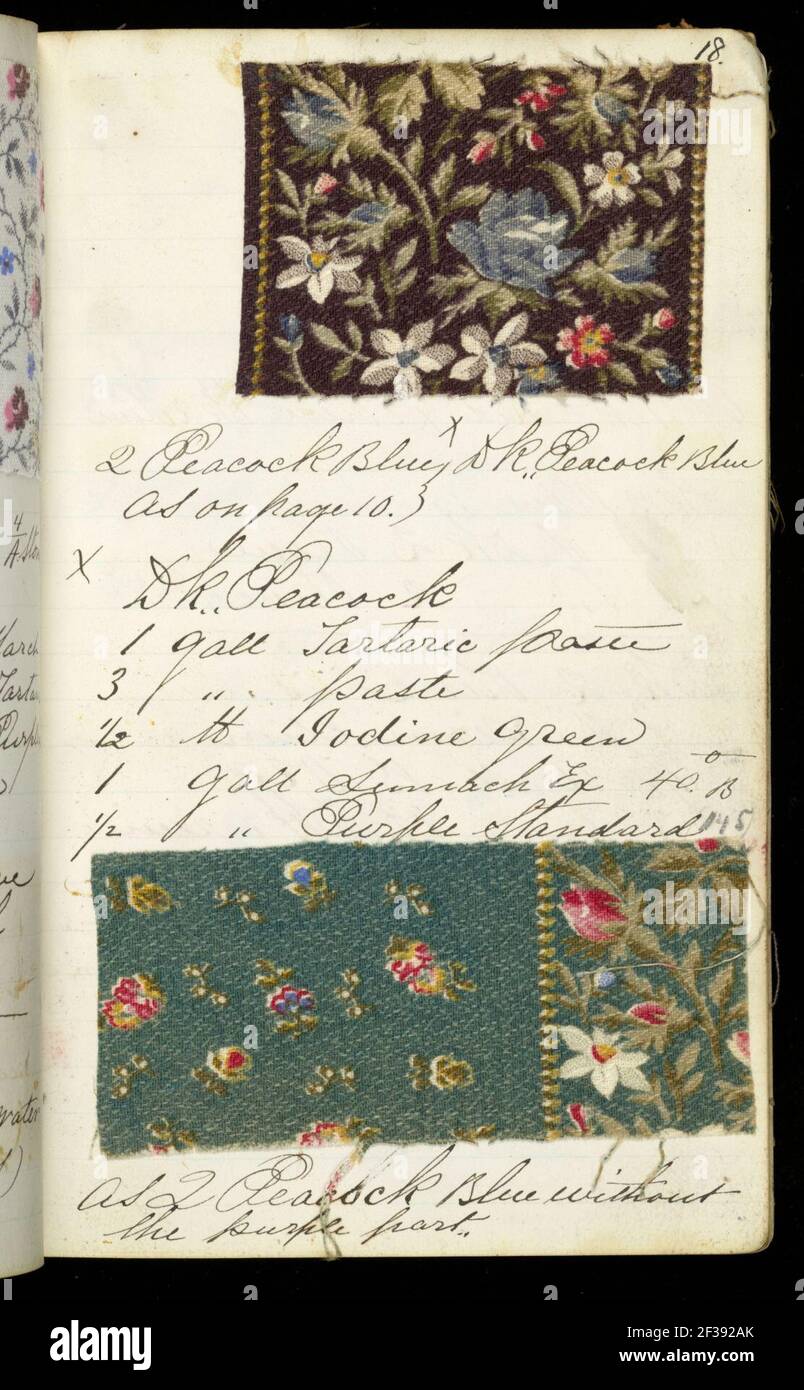 18.
2 Peacock Blue, x Dk,, Peacock Blue
as on page 10.)
x
Dk,, Peacock
1 gall Tartaric paste
3 " paste
1/2 lb Iodine Green
1 gall Sumach Ex 40.° B
1/2 " Purple Standard 145
As 2 Peacock Blue without
the purple part.,
4
water
alamy
Image ID: 2F392AK
www.alamy.com